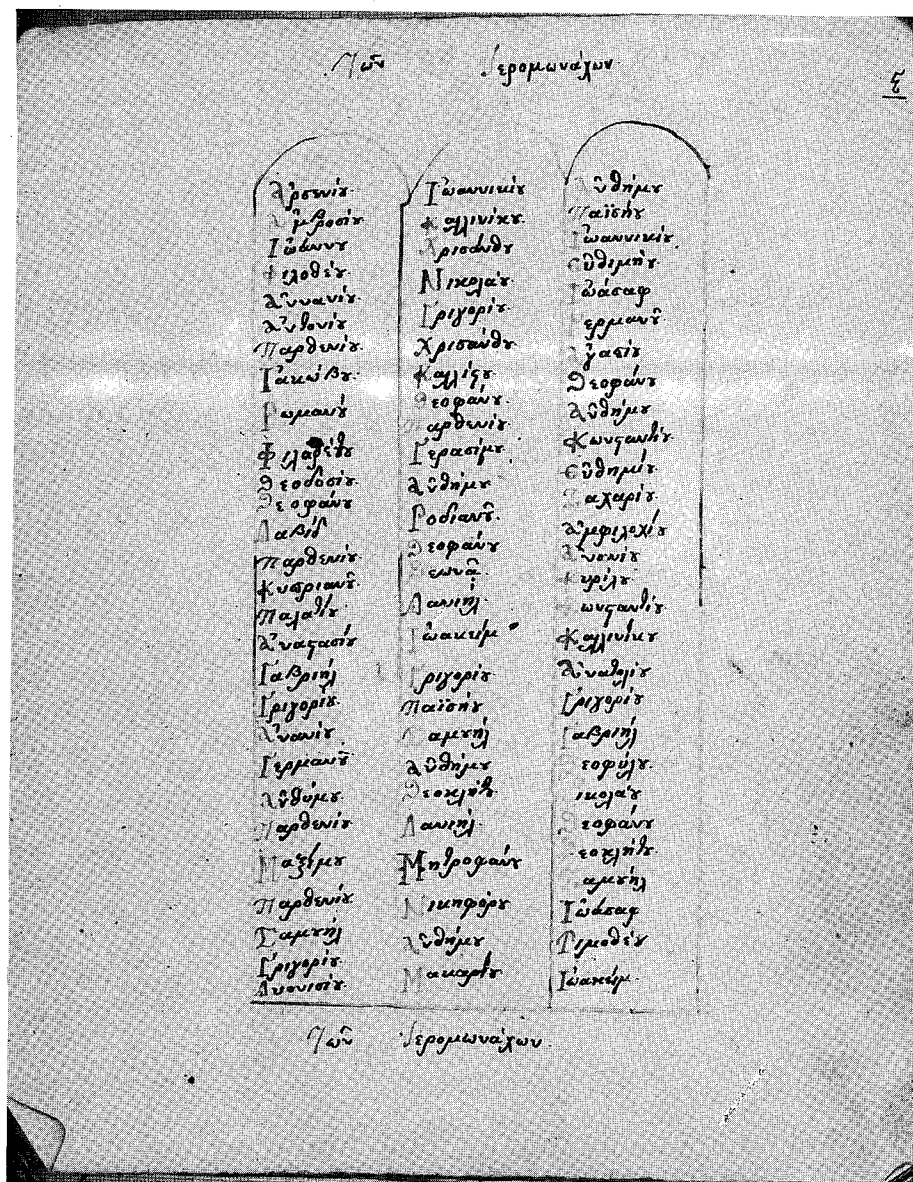 Τῶν Ἱερομωνάχων
ξ
Ἀρσενίου
Ἀμβροσίου
Ἰωάννου
Φιλοθέου
Ἀννανίου
Ἀντονίου
Παρθενίου
Ἰακώβου
Ρωμανού
Φιλαρέτου
Θεοδοσίου
Θεοφάνου
Δαβίδ
Παρθενίου
Κυπριανοῦ
Παλατίου
Ἀναστασίου
Γαβριήλ
Γριγορίου
Ἀνανίου
Γερμανοῦ
Ἀνθύμου
Παρθενίου
Μαξίμου
Παρθενίου
Σαμουήλ
Γριγορίου
Διονισίου
Ἰωαννικίου
Καλλινίκου
Χρισάνθου
Νικολάου
Γριγορίου
Χρισάνθου
Καλλίστου
Θεοφάνου
Παρθενίου
Γερασίμου
Ἀνθήμου
Ροδιανοῦ
Θεοφάνου
Ζεωνᾶ
Δανιήλ
Ἰωακείμ
Γριγορίου
Παϊσήου
Σαμουήλ
Ἀνθήμου
Θεοκλήτου
Δανιήλ
Μητροφάνου
Νικηφόρου
Ἀνθήμου
Μακαρίου
Ἀνθήμου
Παϊσήου
Ἰωαννικίου
Εὐθιμήου
Ἰωάσαφ
Γερμανοῦ
Ἀγασίου
Θεοφάνου
Ἀνθήμου
Κωνσταντίου
Εὐθημίου
Ζαχαρίου
Ἀμφιλοχίου
Ἀνσονίου
Κυρίλου
Κωνσταντίου
Καλλινίκου
Ἀνατολίου
Γριγορίου
Γαβριήλ
Θεοφύλου
Νικολάου
Θεοφάνου
Θεοκλήτου
Σαμουήλ
Ἰωάσαφ
Τιμοθέου
Ἰωακώμ
Τῶν Ἱερομωνάχων